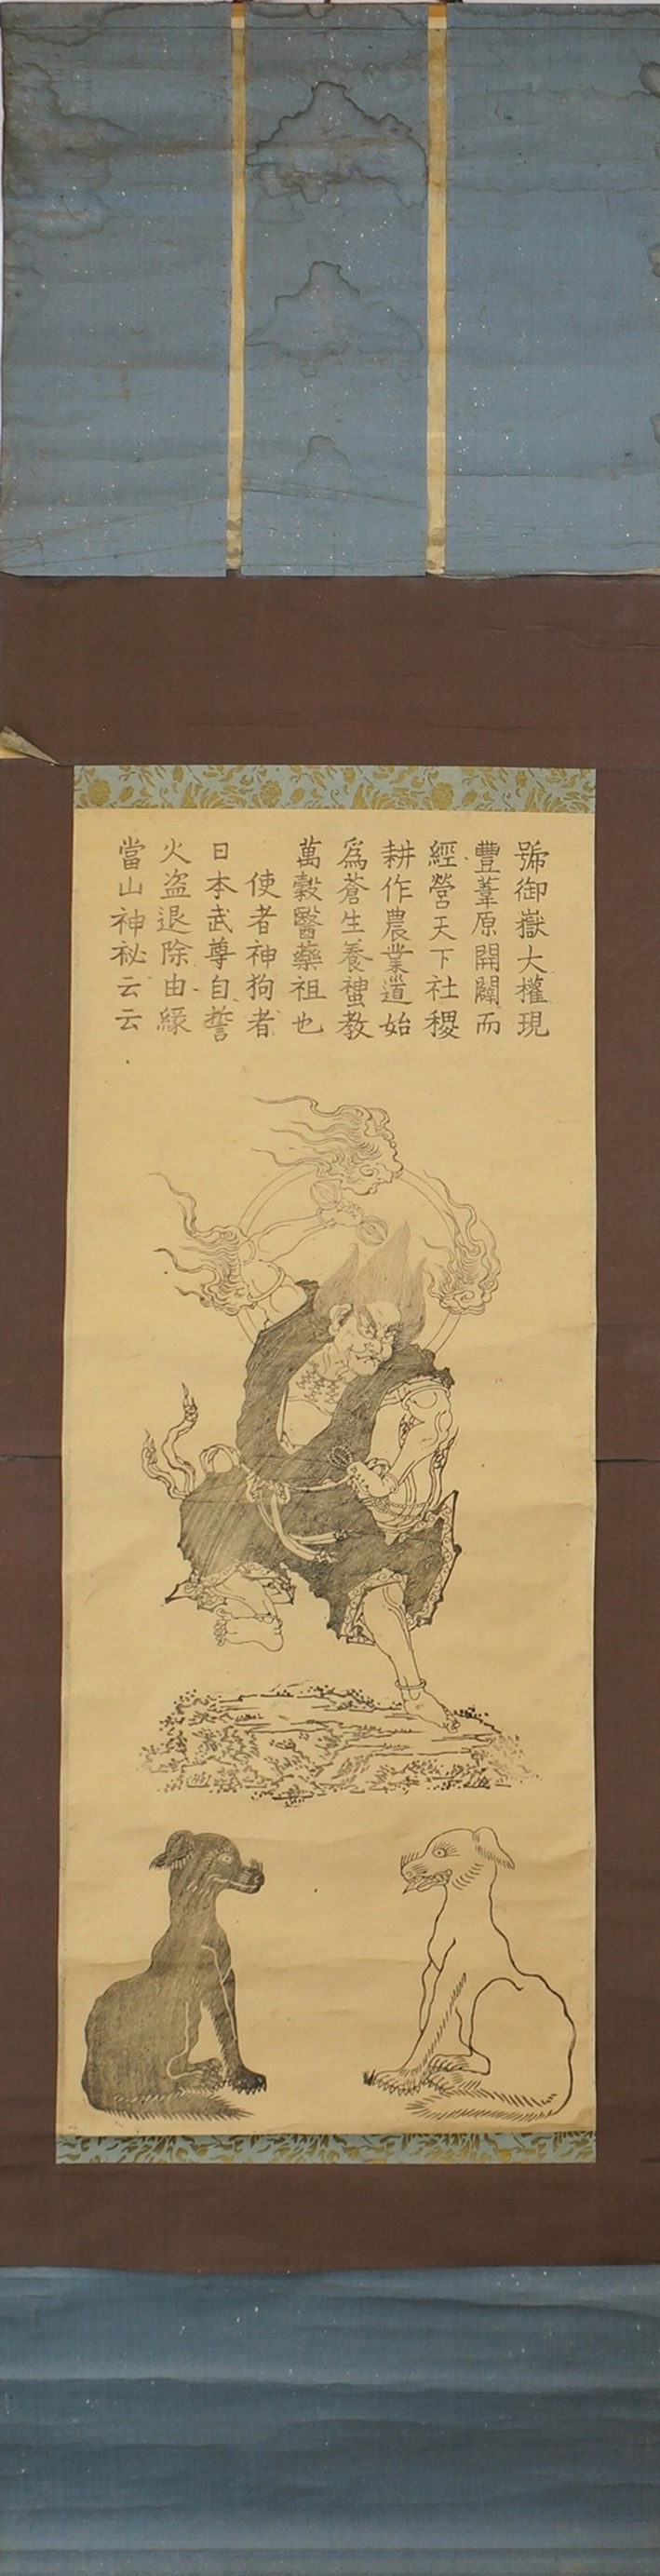 號御嶽大權現
豐葦原開闢而
經營天下社稷
耕作農業道始
爲蒼生養蠶教
萬穀醫藥祖也
使者神狗者
日本武尊自誓
火盗退除由縁
當山神祕云云